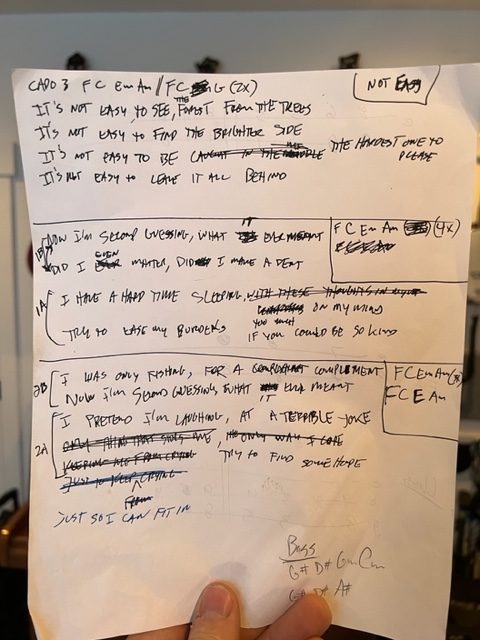 CAPO 3 F C Em Am / F C G (2X)
NOT EASY
IT'S NOT EASY TO SEE, THE FOREST FROM THE TREES
IT'S NOT EASY TO FIND THE BRIGHTER SIDE
IT'S NOT EASY TO BE CAUGHT IN THE MIDDLE THE HARDEST ONE TO PLEASE
IT'S NOT EASY TO LEAVE IT ALL BEHIND
1B NOW I'M SECOND GUESSING, WHAT IT EVER MEANT
F C Em Am (4X)
DID I EVEN MATTER, DID I MAKE A DENT
1A I HAVE A HARD TIME SLEEPING, WITH THESE THOUGHTS IN
ON MY MIND
YOU MUST
TRY TO EASE MY BURDENS IF YOU COULD BE SO KIND
2B I WAS ONLY FISHING, FOR A COMPLEMENT
F C Em Am
NOW I'M SECOND GUESSING, WHAT IT EVER MEANT
F C E Am
2A I PRETEND I'M LAUGHING, AT A TERRIBLE JOKE
ONLY THING THAT , THE ONLY WAY I COPE
KEEPING ME FROM CRYING
TRY TO FIND SOME HOPE
JUST TO KEEP CRYING
FROM
JUST SO I CAN FIT IN
BASS
G# D# Gm Cm
G# D# A#